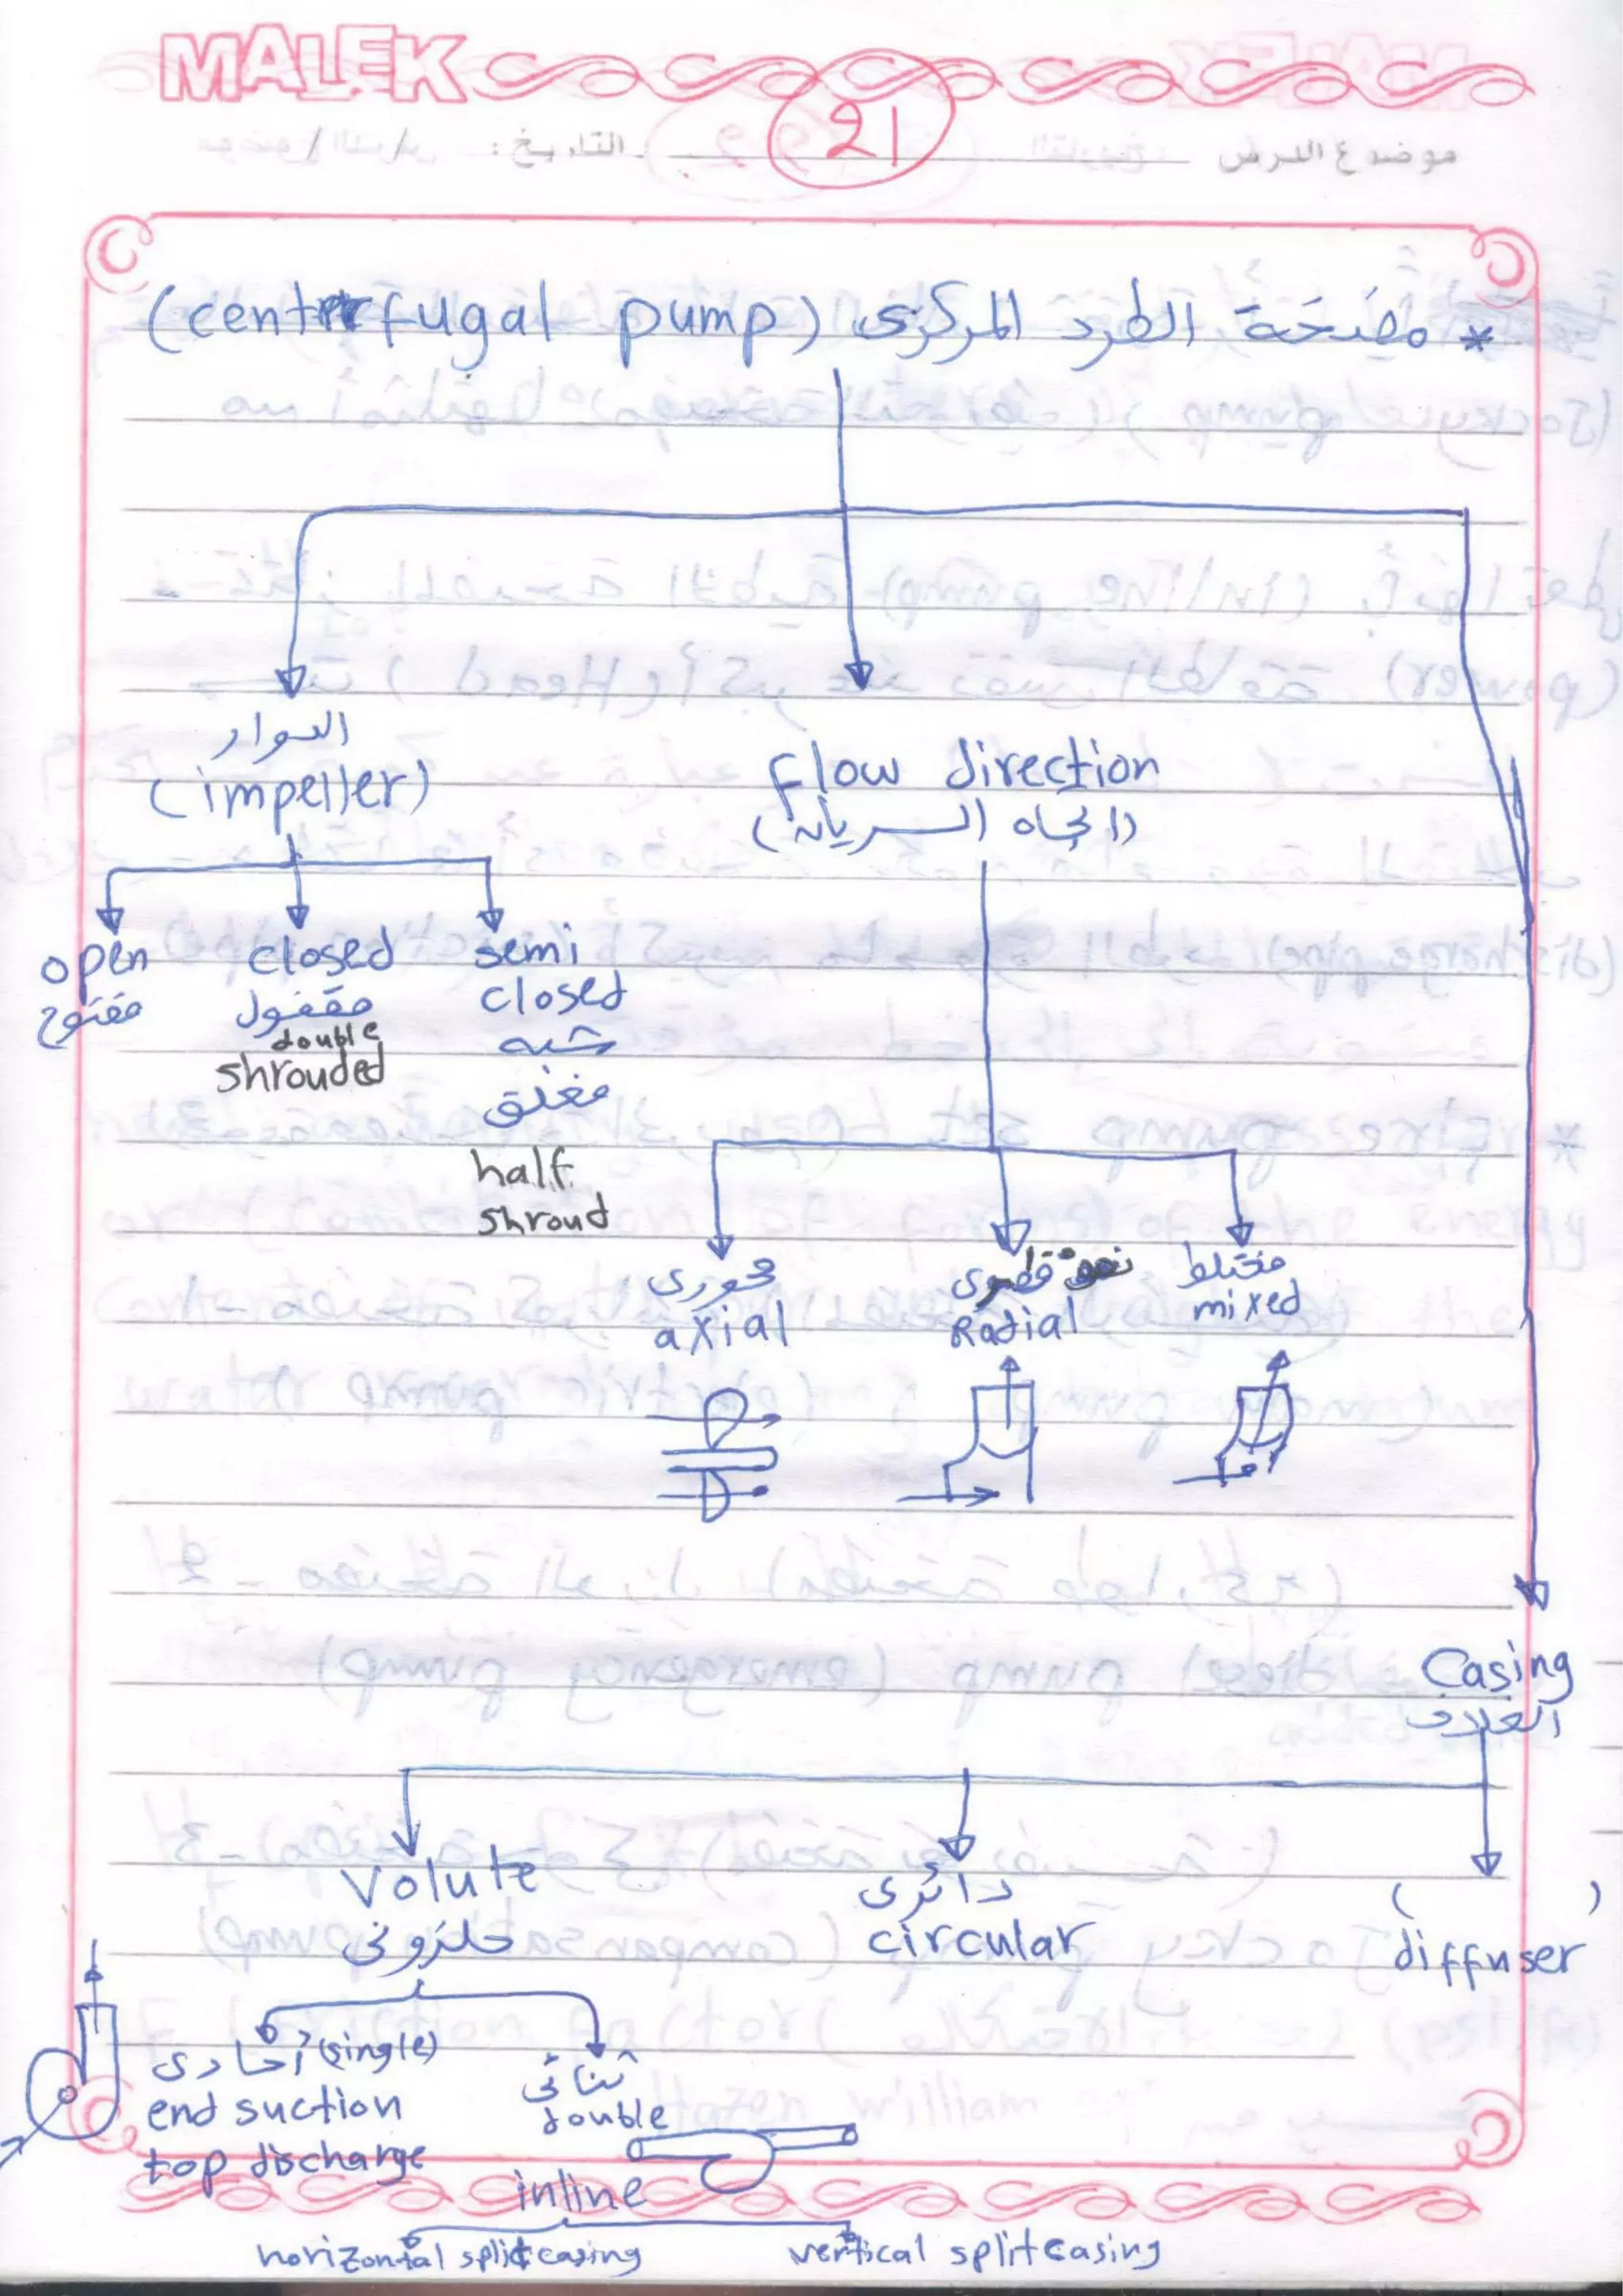 MALEK
21
موضوع الدرس
التاريخ:
* مضخة الطرد المركزى (centrifugal pump)
الدوار
(impeller)
Flow direction
(اتجاه السريان)
open
مفتوح
closed
مقفول
double
shrouded
semi
closed
شبه
مغلق
half
shroud
محورى
axial
قطرى
Radial
مختلط
mixed
Casing
الغلاف
Volute
حلزونى
دائرى
circular
( )
diffuser
أحادى (single)
end suction
top discharge
ثنائى
double
inline
horizontal split casing
vertical split casing